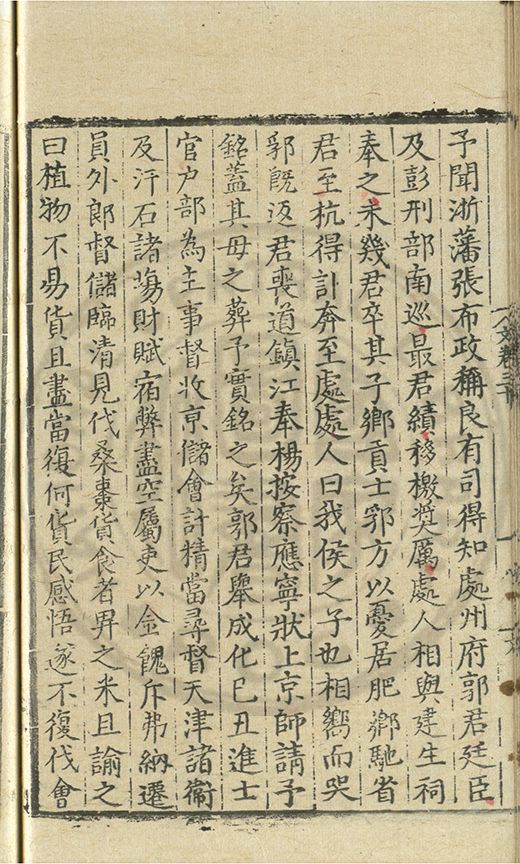 予聞浙藩張布政稱良有司得知處州府郭君廷臣
及彭刑部南巡最君績移檄奬厲處人相與建生祠
奉之未幾君卒其子鄉貢士郛方以憂居肥鄉馳省
君至杭得訃奔至處處人曰我侯之子也相嚮而哭
郛既返君喪道鎮江奉楊按察應寧狀上京師請予
銘葢其母之葬予實銘之矣郭君舉成化己丑進士
官户部為主事督收京儲會計精當尋督天津諸衞
及汗石諸塲財賦宿弊盡空屬吏以金餽斥弗納遷
員外郎督儲臨清見伐桑棗貨食者畀之米且諭之
曰植物不易貨且盡當復何貨民感悟遂不復伐會
文卷